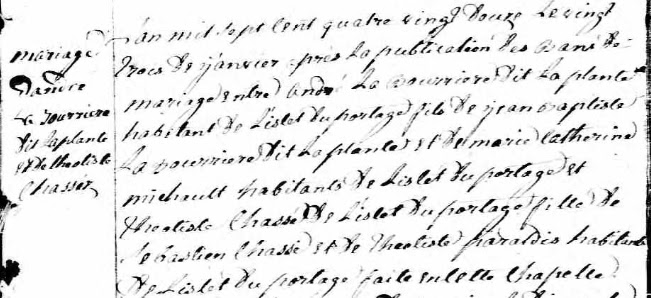 mariage
Dandré
La Bourriere
dit Laplante
et de theotiste
Chassér
L'an mil sept Cent quatre vingt Douze Le vingt
trois De janvier après La publication des Bans de
mariage entre André La Bourriere dit La plante
habitant de L'islet Du portage fils de jean Baptiste
La Bourriere dit La plante et de marie Catherine
michault habitants de L'islet Du portage et
theotiste Chassé de L'islet Du portage fille de
Sebastien Chassé et de theotiste paradis habitants
De L'islet Du portage faite en Cette Chapelle